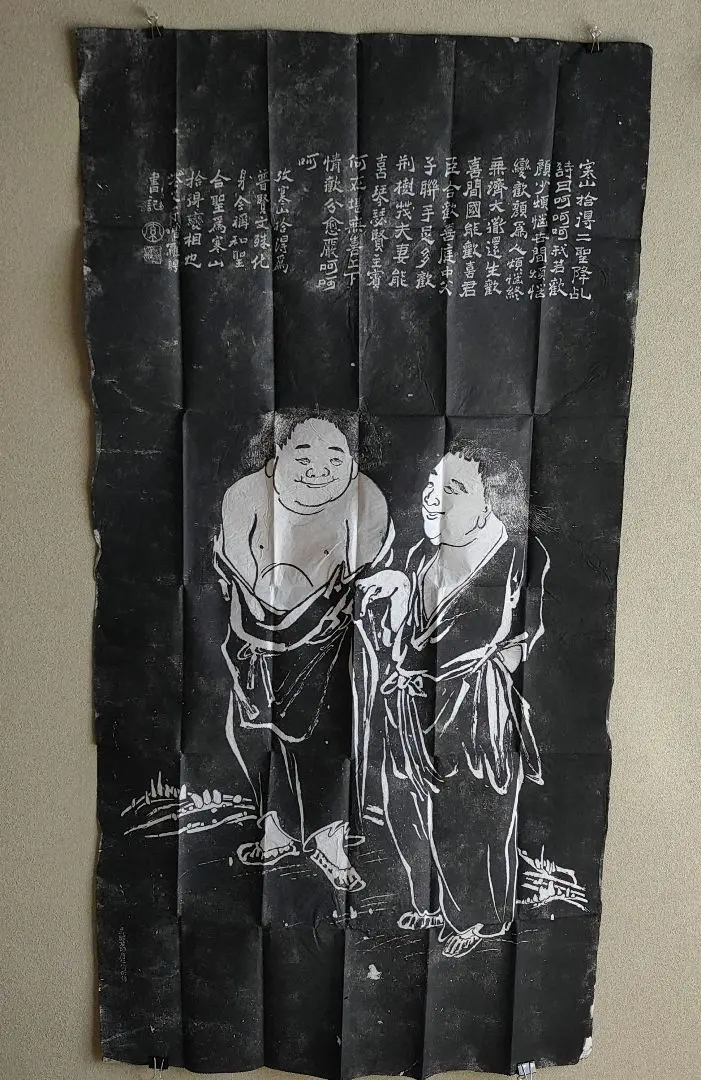 寒山拾得二聖降乩
詩曰呵呵呵我若歡
顏少煩惱世間煩惱
變歡顏爲人煩惱終
無濟大道還生歡
喜間國能歡喜君
臣合歡喜庭中父
子聯手足多歡
荆樹茂夫妻能
喜琴瑟賢主賓
何在堪無喜上下
情歡分愈嚴呵呵
呵
攷寒山拾得爲
普賢文殊化
身今稱和聖
合聖爲寒山
拾得變相也
羅聘
書記